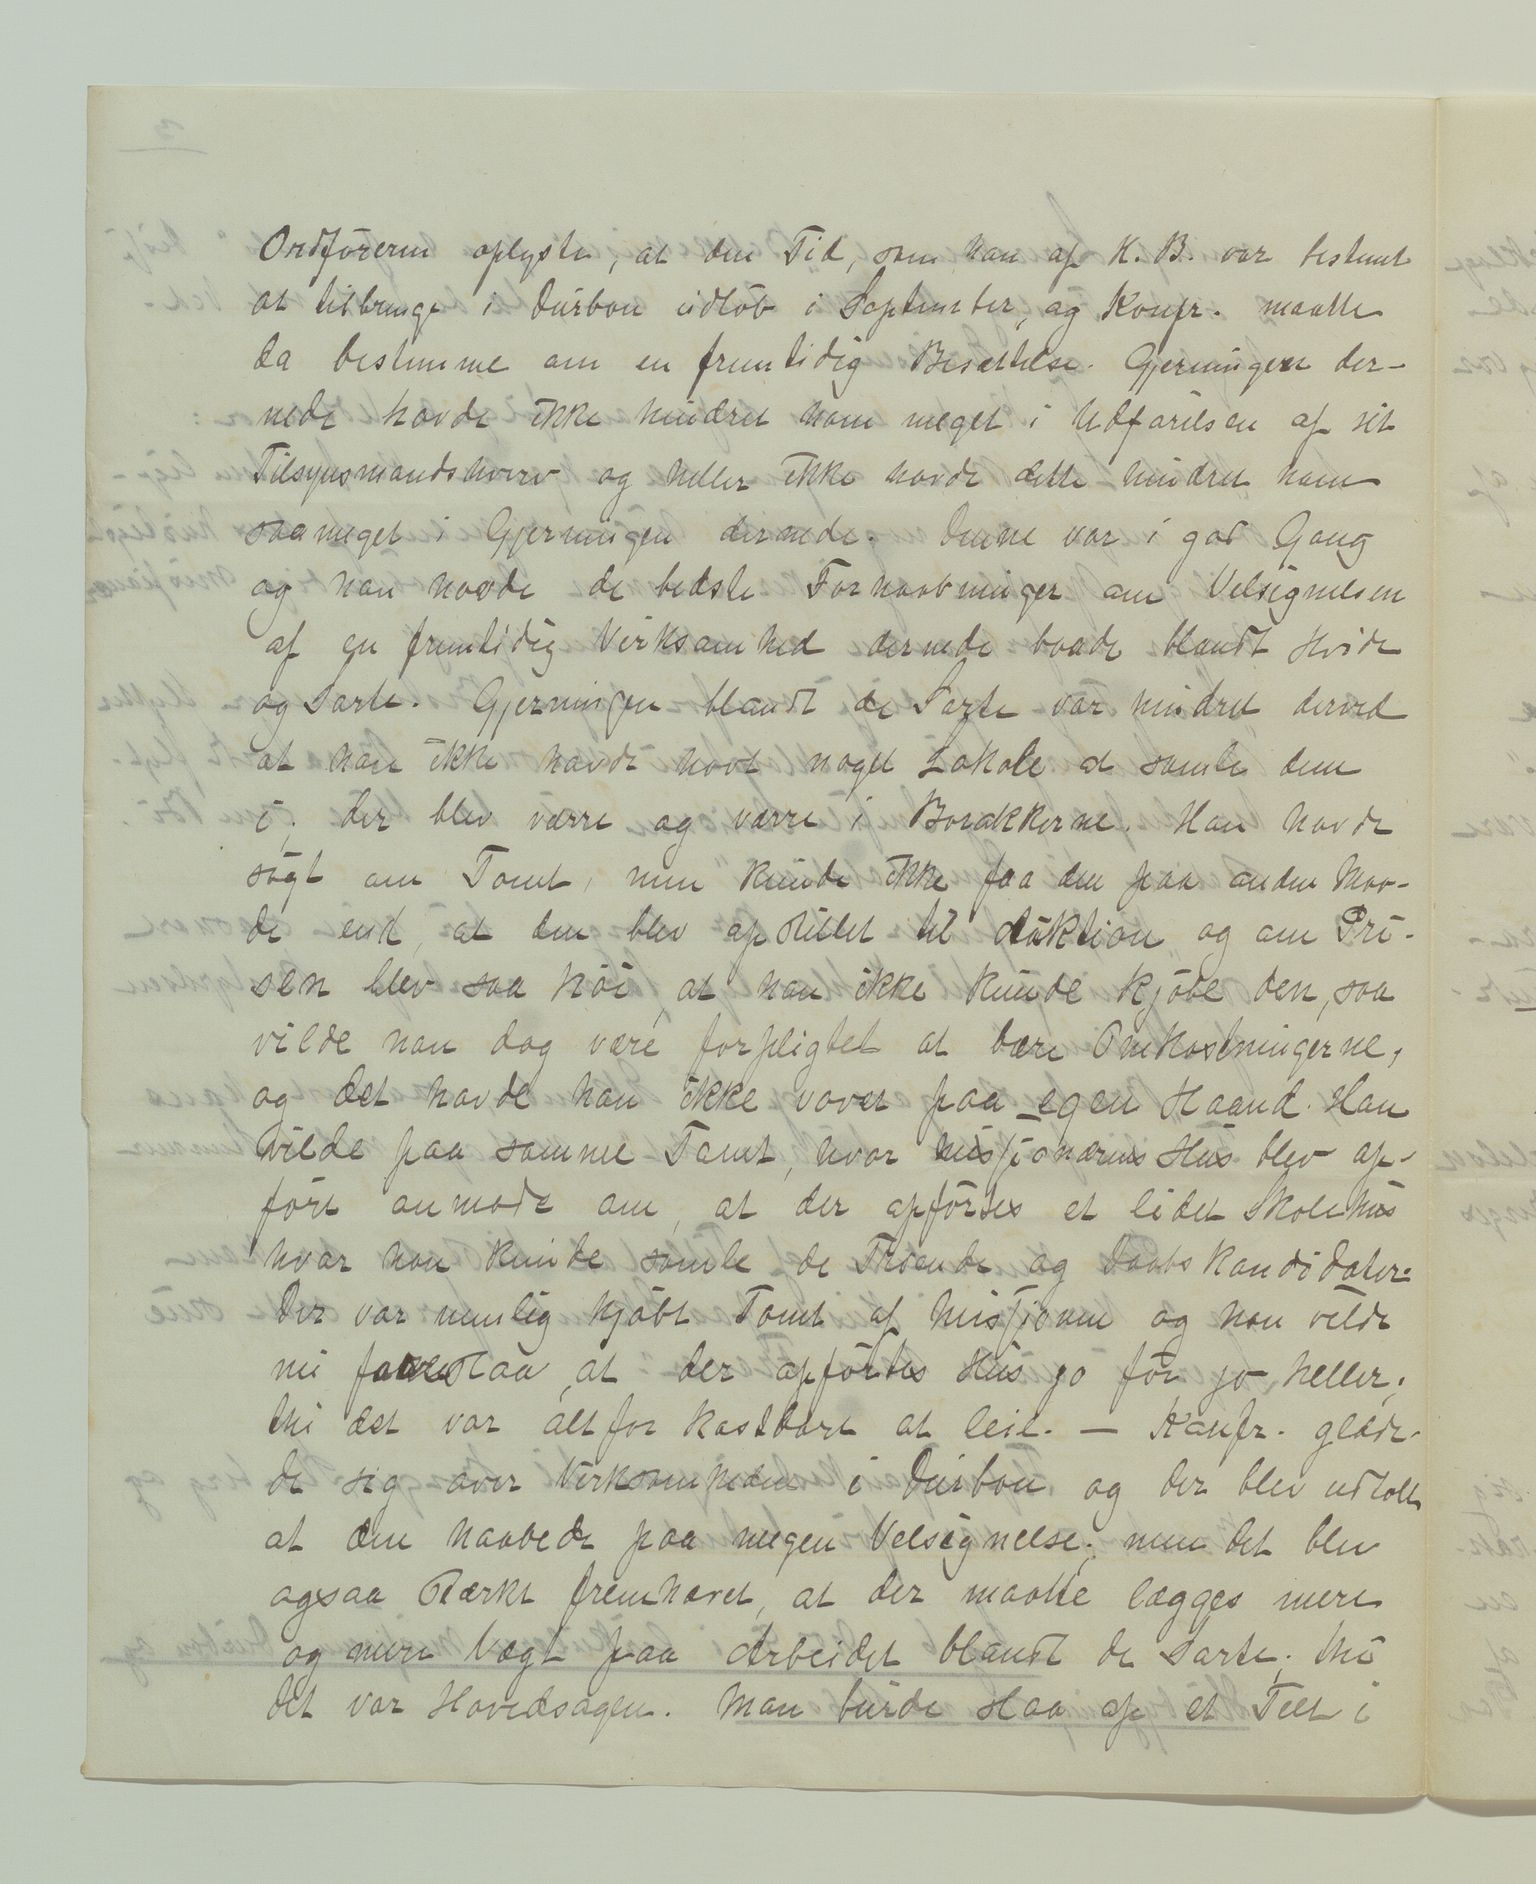 Ordføreren oplyste, at den Tid, som han af H. B. var bestemt
at tilbringe i Durban udløb i September, og Konfr. maatte
da bestemme om en fremtidig Besættelse. Gjerningen der-
nede havde ikke hindret ham meget i Udførelsen af sit
Tilsynsmandshverv og heller ikke havde dette hindret ham
saa meget i Gjerningen dernede. Denne var i god Gang
og han havde de bedste Forhaabninger om Velsignelsen
af en fremtidig Virksomhed dernede baade blandt Hvide
og Sorte. Gjerningen blandt de Sorte var hindret derved
at han ikke havde havt noget Lokale at samle dem
i; der blev værre og værre i Barakkerne. Han havde
søgt om Tomt, men kunde ikke faa den paa anden Maa-
de end, at den blev opstillet til Auktion, og om Pri-
sen blev saa høi, at han ikke kunde kjøbe den, saa
vilde han dog være forpligtet at bære Omkostningerne,
og det havde han ikke vovet paa egen Haand. Han
vilde paa samme Tomt, hvor Missionærens Hus blev op-
ført anmode om, at der opførtes et lidet Skolehus
hvor han kunde samle de Troende og Daabskandidater.
Der var nemlig kjøbt Tomt af Missionen og han vilde
nu foreslaa, at der opførtes Hus jo før jo heller;
thi det var altfor kostbart at leie. — Konfr. glæde-
de sig over Virksomheden i Durban og der blev udtalt
at den haabede paa megen Velsignelse; men det blev
ogsaa stærkt fremhævet, at der maatte lægges mere
og mere Vægt paa Arbeidet blandt de Sorte; thi
det var Hovedsagen. Man burde slaa op et Telt i